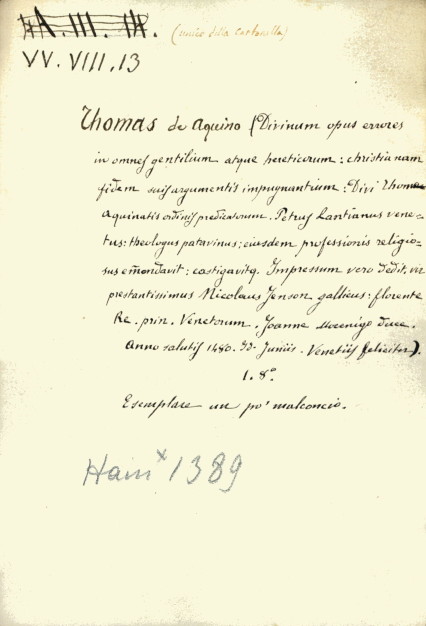 A. III. 14.
(unico della Cartanella)
VV. VIII. 13
Thomas de Aquino (Divinum opus errores
in omnes gentilium atque hereticorum: christianam
fidem suis argumentis impugnantium: Divi Thomae
Aquinatis ordinis predicatorum. Petrus Cantianus vene-
tus: theologus patavinus: eiusdem professionis religio-
sus emendavit: castigavitq. Impressum vero dedit. vir
prestantissimus Nicolaus Jenson gallicus: florente
Re. prin. Venetorum. Joanne Mocenigo duce.
Anno salutis 1480. Id. Juniis. Venetiis feliciter).
1. 8°.
Esemplare un po' malconcio.
Hain × 1389